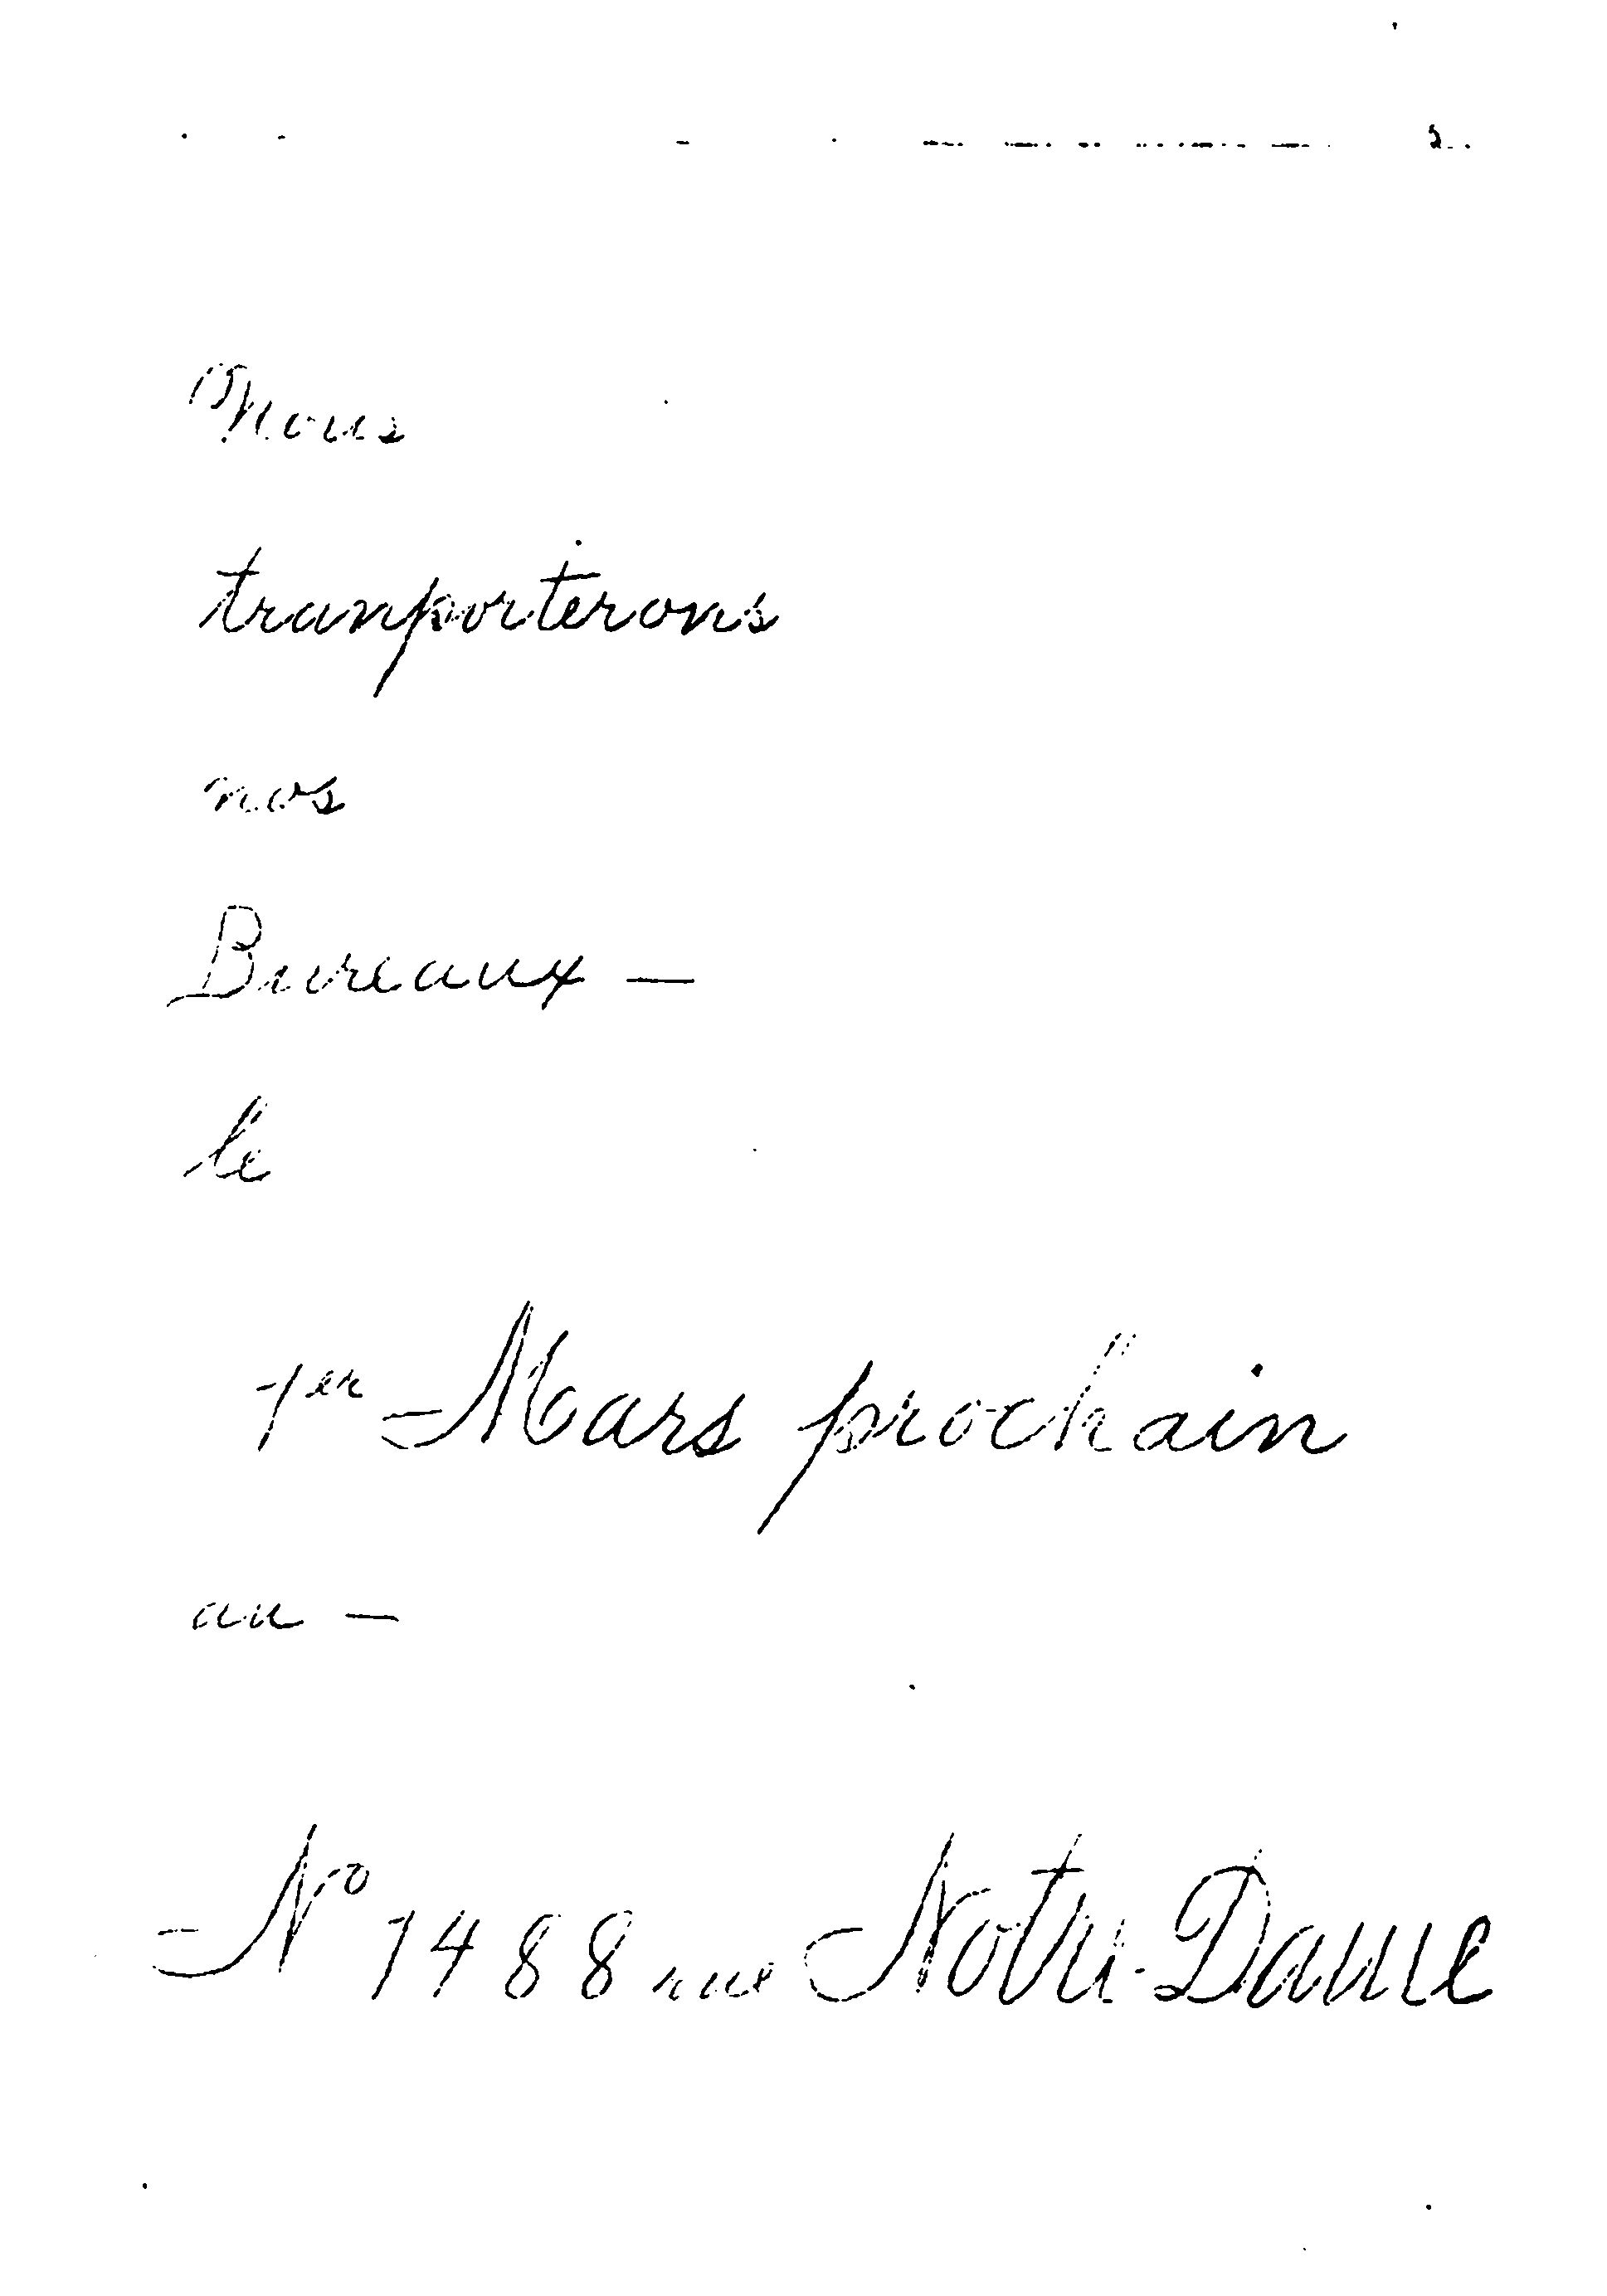 Nous
tranporterons
nos
Bureaux —
le
1er Mars prochain
au —
No 1488 rue Notre-Dame